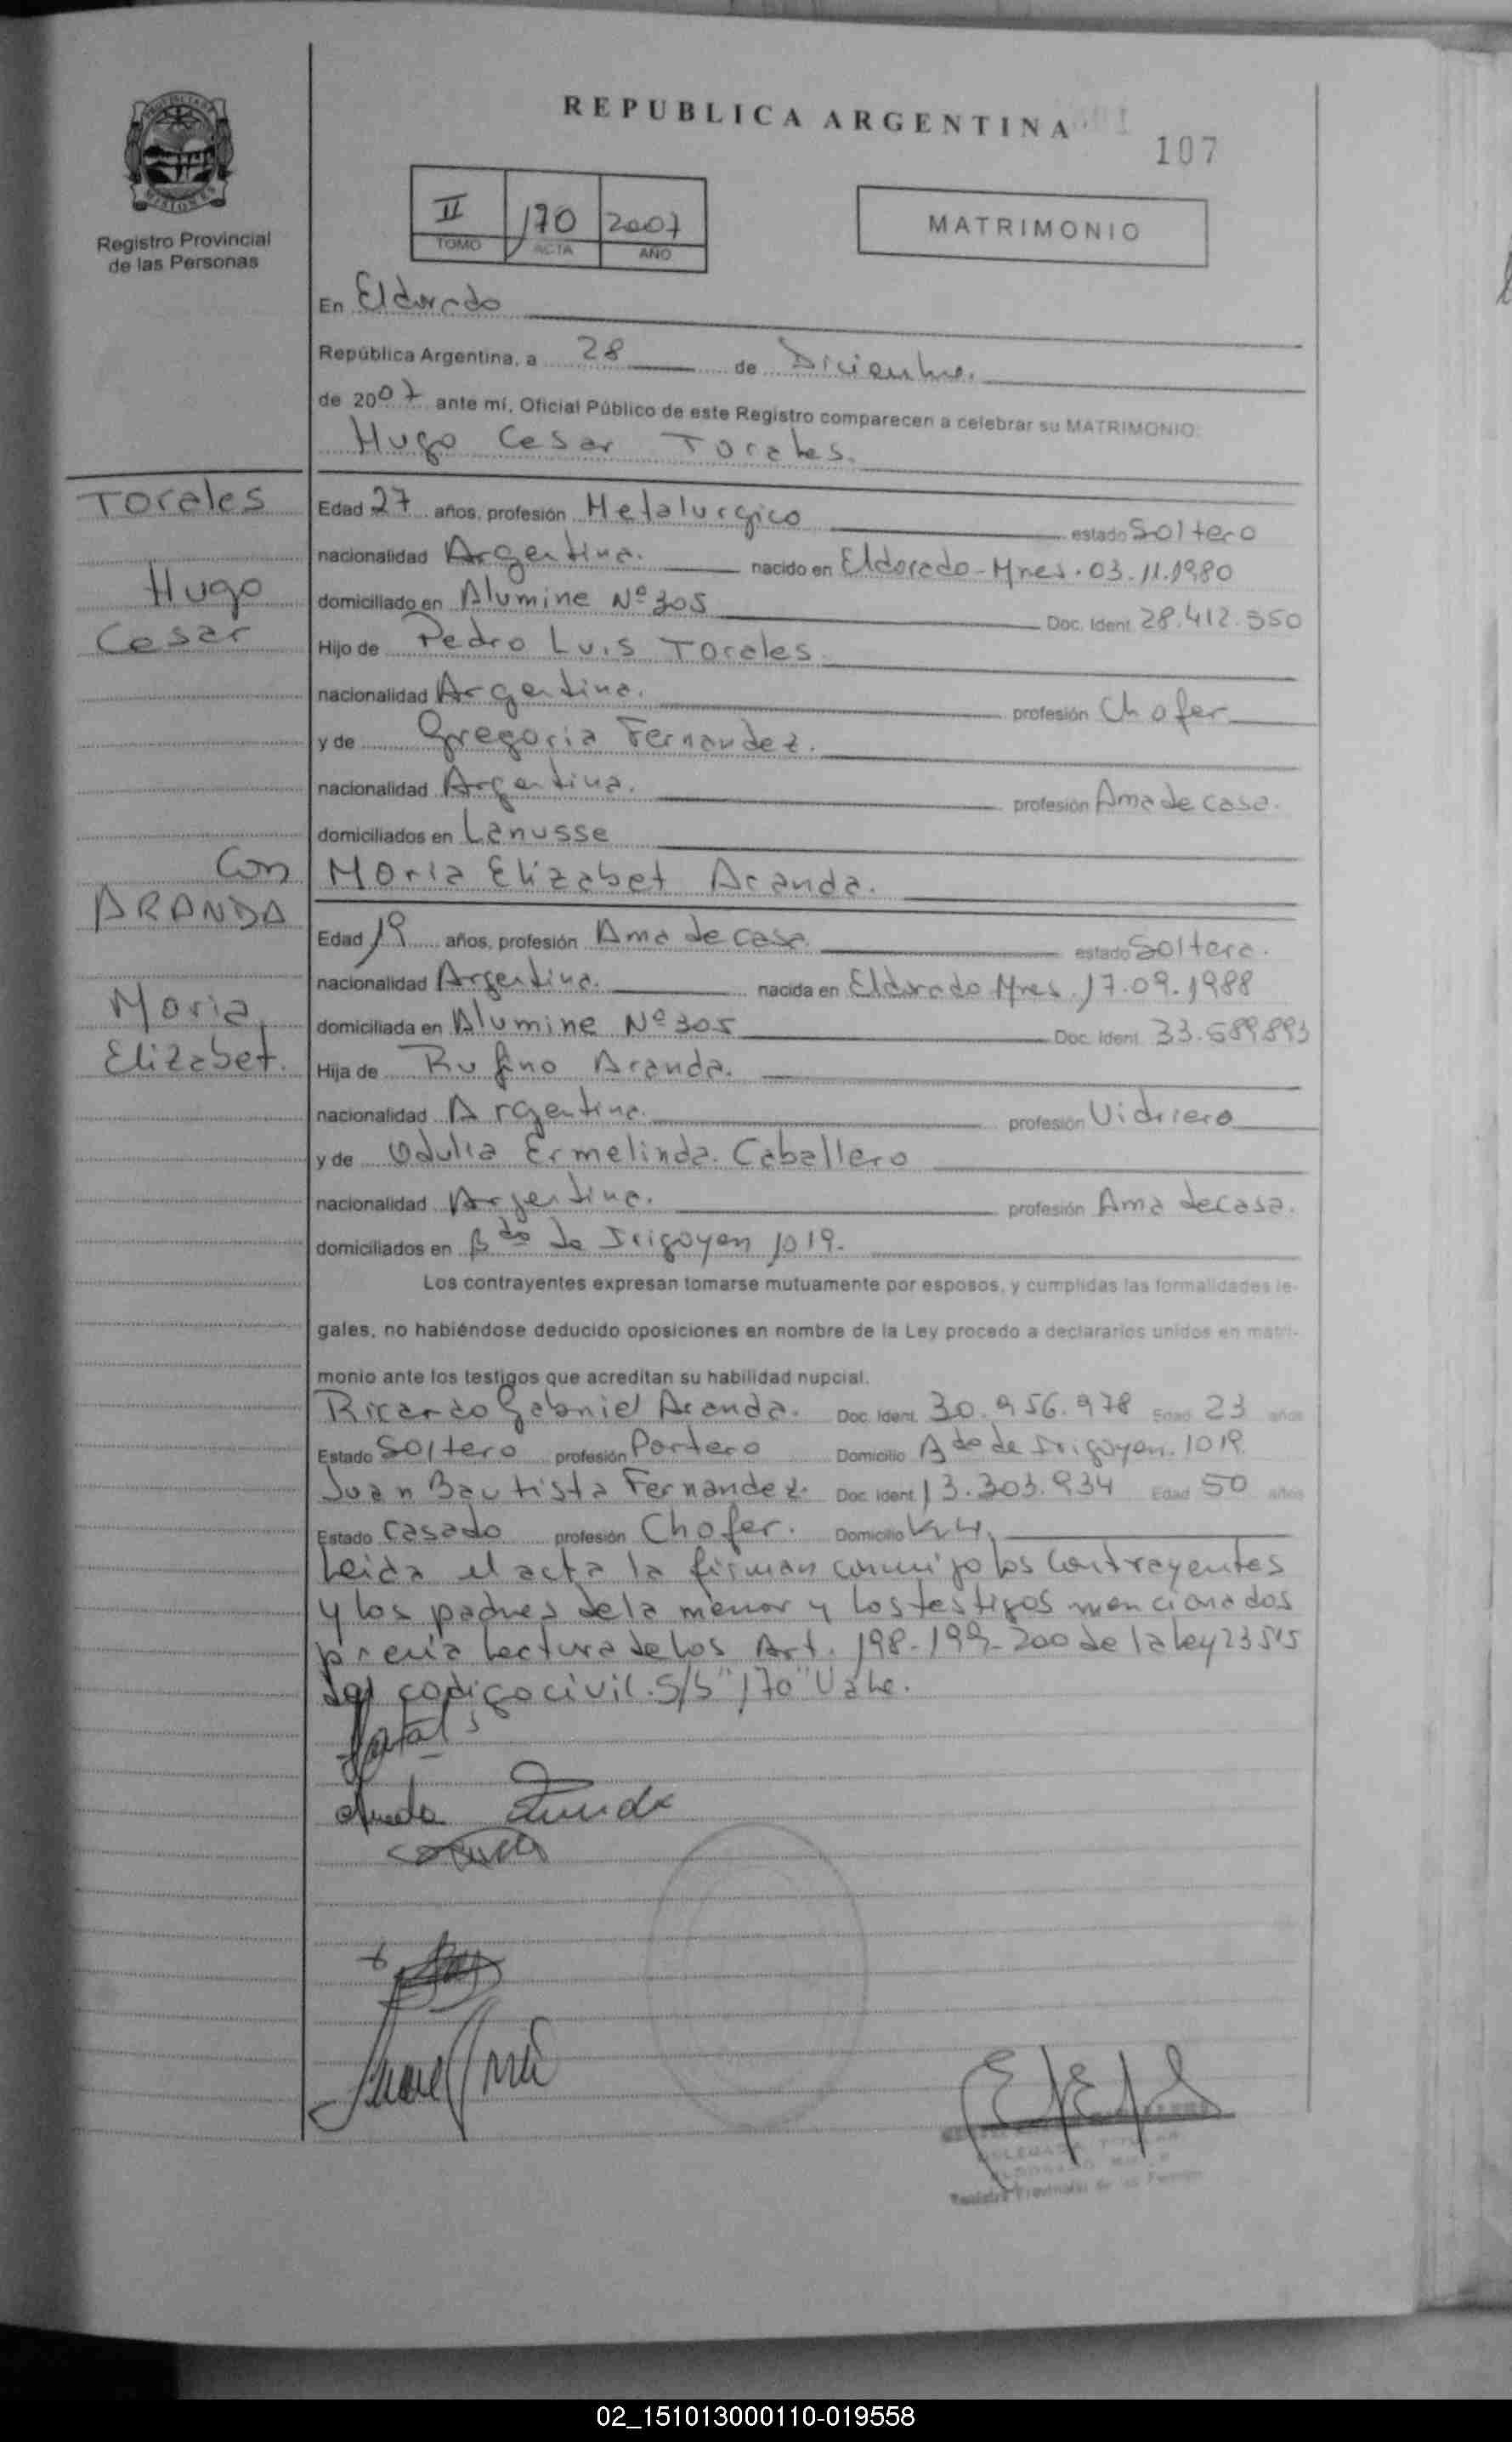 REPUBLICA ARGENTINA
107
PROVINCIA DE
MISIONES
Registro Provincial
de las Personas
II 170 2007
TOMO ACTA AÑO
MATRIMONIO
En Eldorado
República Argentina, a 28 de Diciembre.
de 2007 ante mí, Oficial Público de este Registro comparecen a celebrar su MATRIMONIO:
Hugo Cesar Torales.
Torales
Edad 27 años, profesión Metalurgico estado Soltero
nacionalidad Argentina. nacido en Eldorado-Mnes. 03.11.1980
Hugo
domiciliado en Alumine Nº 305 Doc. Ident. 28.412.350
Cesar
Hijo de Pedro Luis Torales
nacionalidad Argentina. profesión Chofer
y de Gregoria Fernandez.
nacionalidad Argentina. profesión Ama de casa.
domiciliados en Lanusse
Con
Moria Elizabet Aranda.
ARANDA
Edad 19 años, profesión Ama de casa estado Soltera.
nacionalidad Argentina. nacida en Eldorado Mnes. 17.09.1988
Moria
domiciliada en Alumine Nº 305 Doc. Ident. 33.689.893
Elizabet.
Hija de Rufino Aranda.
nacionalidad Argentina. profesión Vidriero
y de Odulia Ermelinda Caballero
nacionalidad Argentina. profesión Ama de casa.
domiciliados en Bdo de Irigoyen 1019.
Los contrayentes expresan tomarse mutuamente por esposos, y cumplidas las formalidades le-
gales, no habiéndose deducido oposiciones en nombre de la Ley procedo a declararlos unidos en matri-
monio ante los testigos que acreditan su habilidad nupcial.
Ricardo Gabriel Aranda. Doc. Ident. 30.956.978 Edad 23 años
Estado Soltero profesión Portero Domicilio Bdo de Irigoyen. 1019.
Juan Bautista Fernandez. Doc. Ident. 13.303.934 Edad 50 años
Estado Casado profesión Chofer. Domicilio K 4.
Leida el acta la firman conmigo los Contrayentes
y los padres de la menor y los testigos mencionados
previa lectura de los Art. 198-199-200 de la ley 23515
del codigo civil. S/S "170" Vale.
Registro Provincial de las Personas
02_151013000110-019558